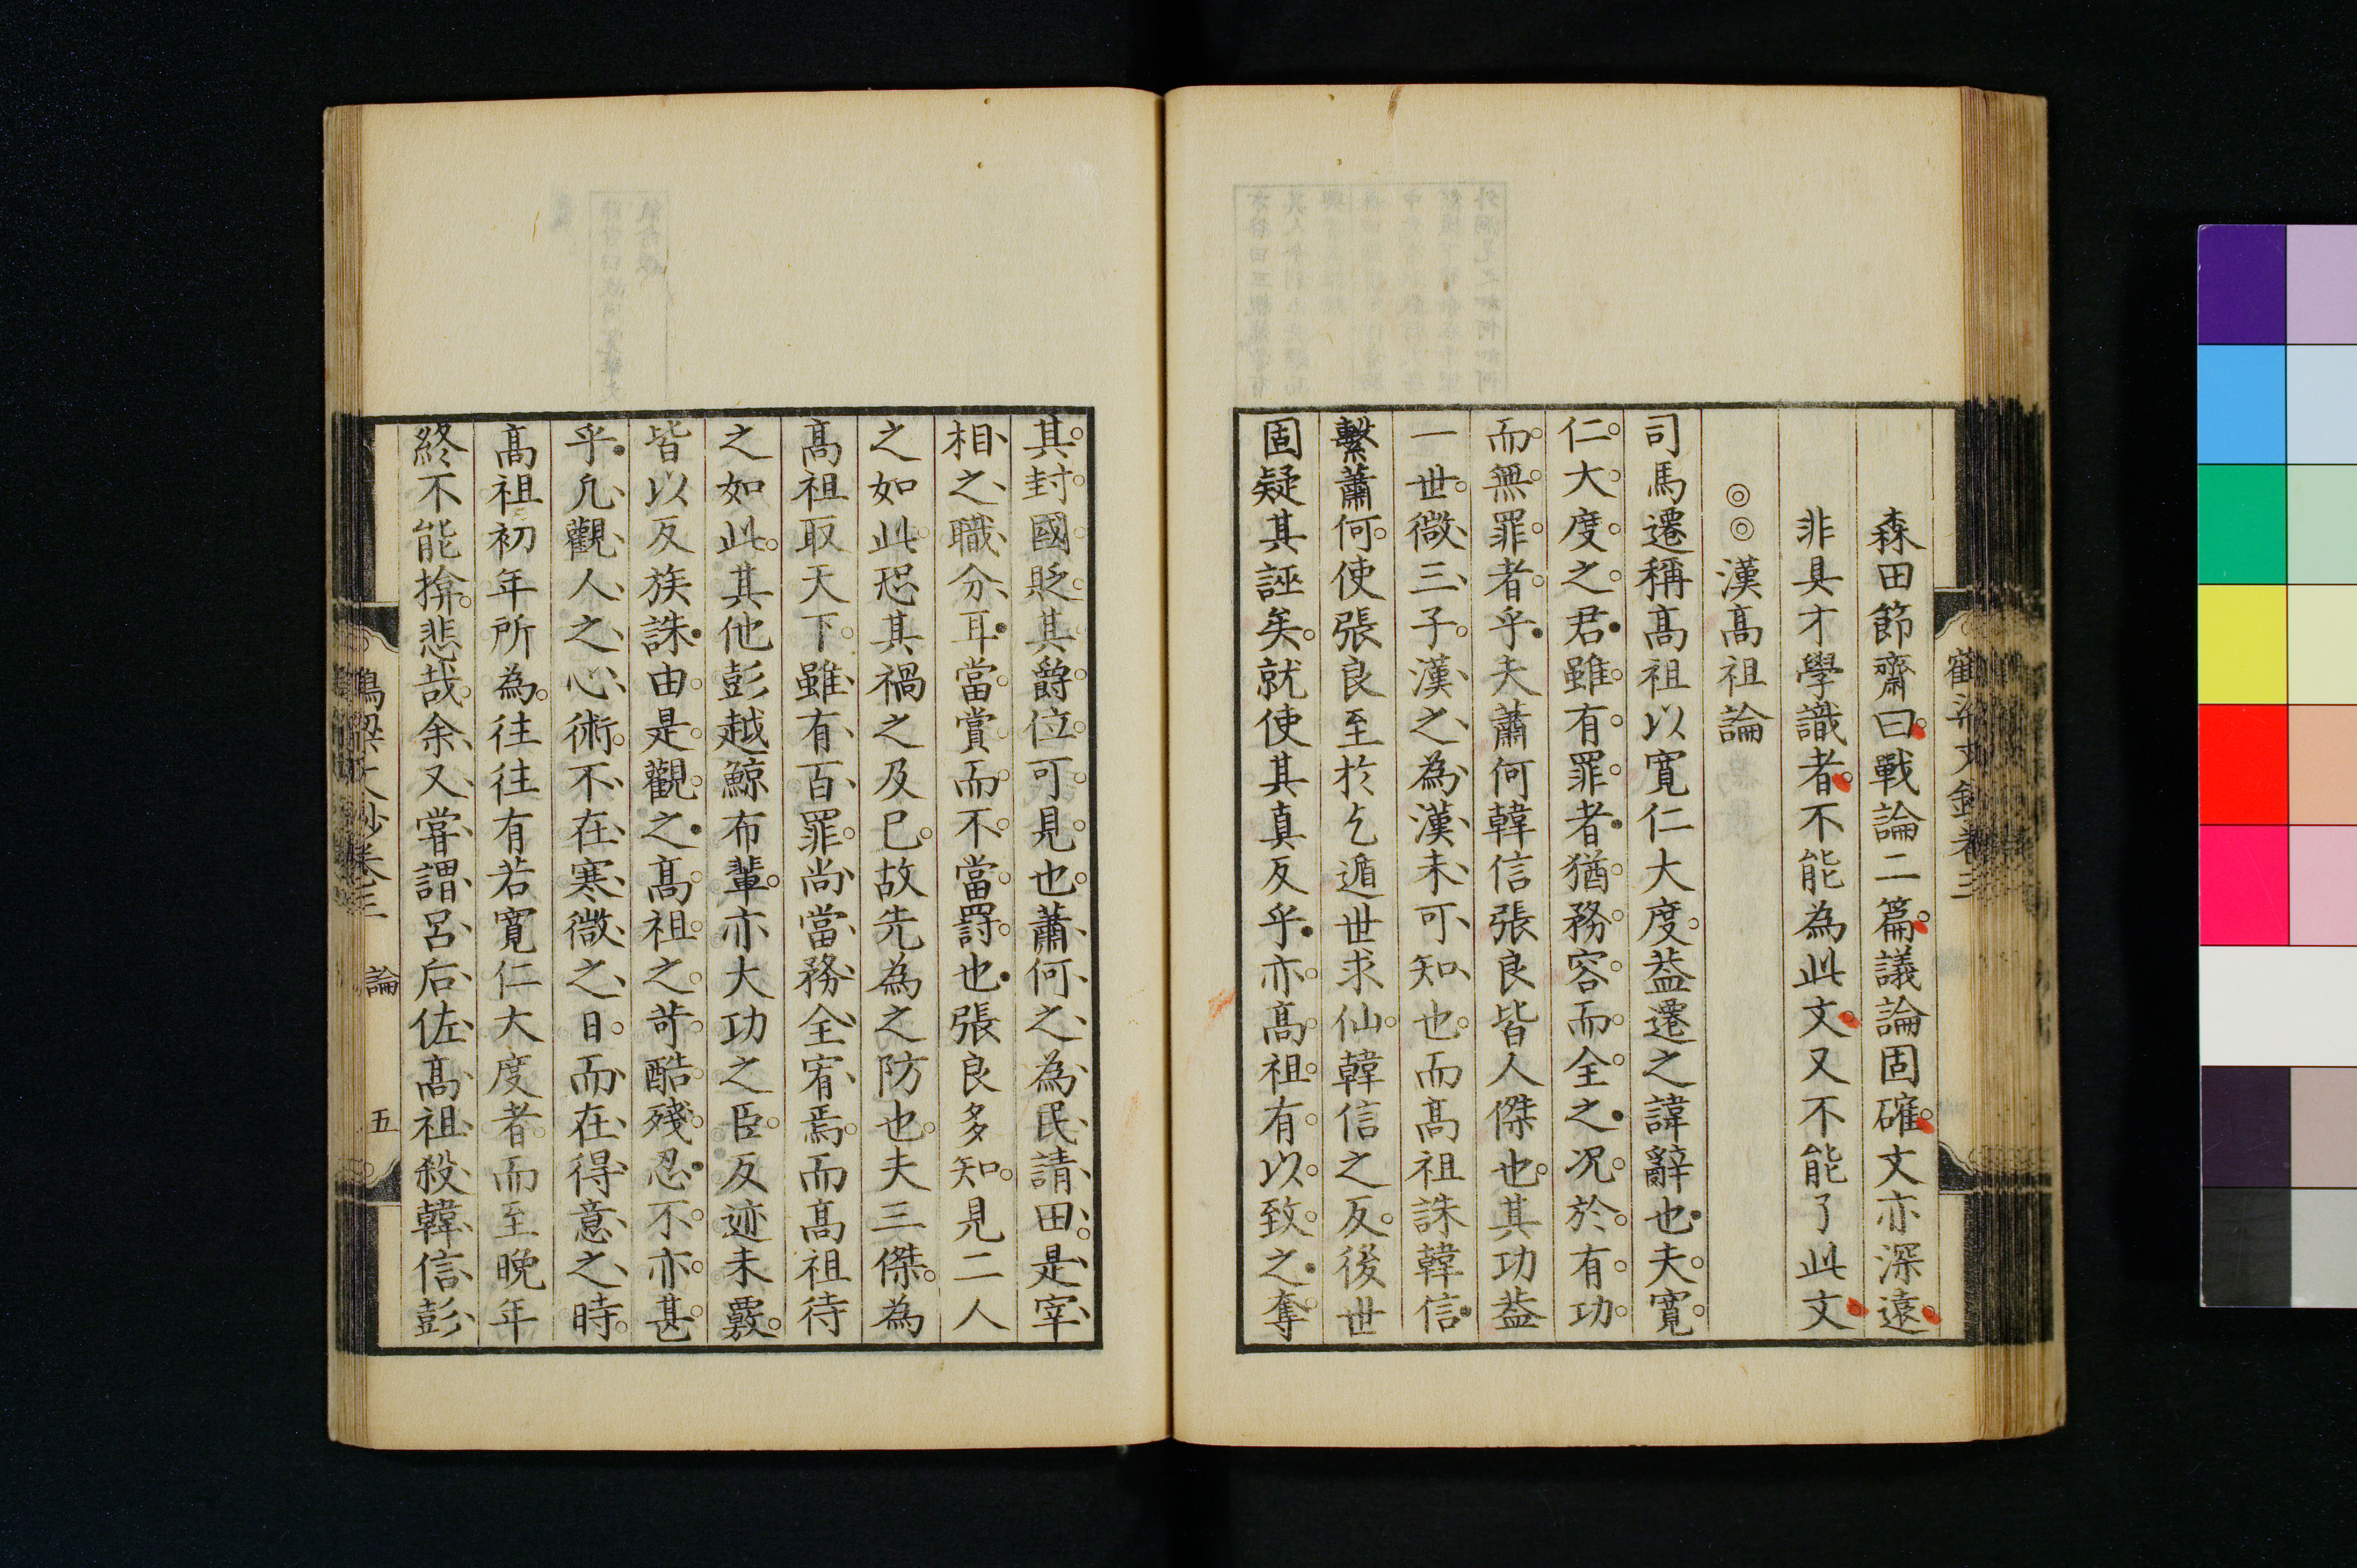 森田節齋曰戰論二篇議論固確文亦深遠
非具才學識者不能為此文又不能了此文
◎◎漢髙祖論
司馬遷稱髙祖以寬仁大度葢遷之諱辭也夫寬
仁大度之君雖有罪者猶務容而全之况於有功
而無罪者乎夫蕭何韓信張良皆人傑也其功葢
一世微三子漢之為漢未可知也而髙祖誅韓信
繫蕭何使張良至於乞遁世求仙韓信之反後世
固疑其誣矣就使其真反乎亦髙祖有以致之奪
其封國貶其爵位可見也蕭何之為民請田是宰
相之職分耳當賞而不當罸也張良多知見二人
之如此恐其禍之及已故先為之防也夫三傑為
髙祖取天下雖有百罪尚當務全宥焉而髙祖待
之如此其他彭越鯨布輩亦大功之臣反迹未覈
皆以反族誅由是觀之髙祖之苛酷殘忍不亦甚
乎凢觀人之心術不在寒微之日而在得意之時
髙祖初年所為往往有若寬仁大度者而至晩年
終不能揜悲哉余又甞謂呂后佐髙祖殺韓信彭
論
五